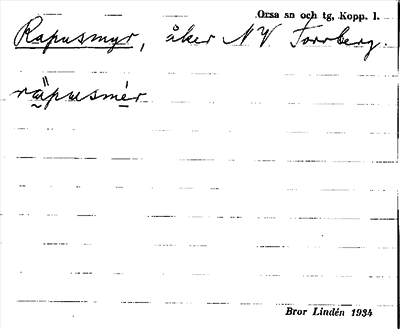 Orsa sn och tg, Kopp. l.
Rapusmyr, åker NV Torrberg.
räpusmér
Bror Lindén 1934